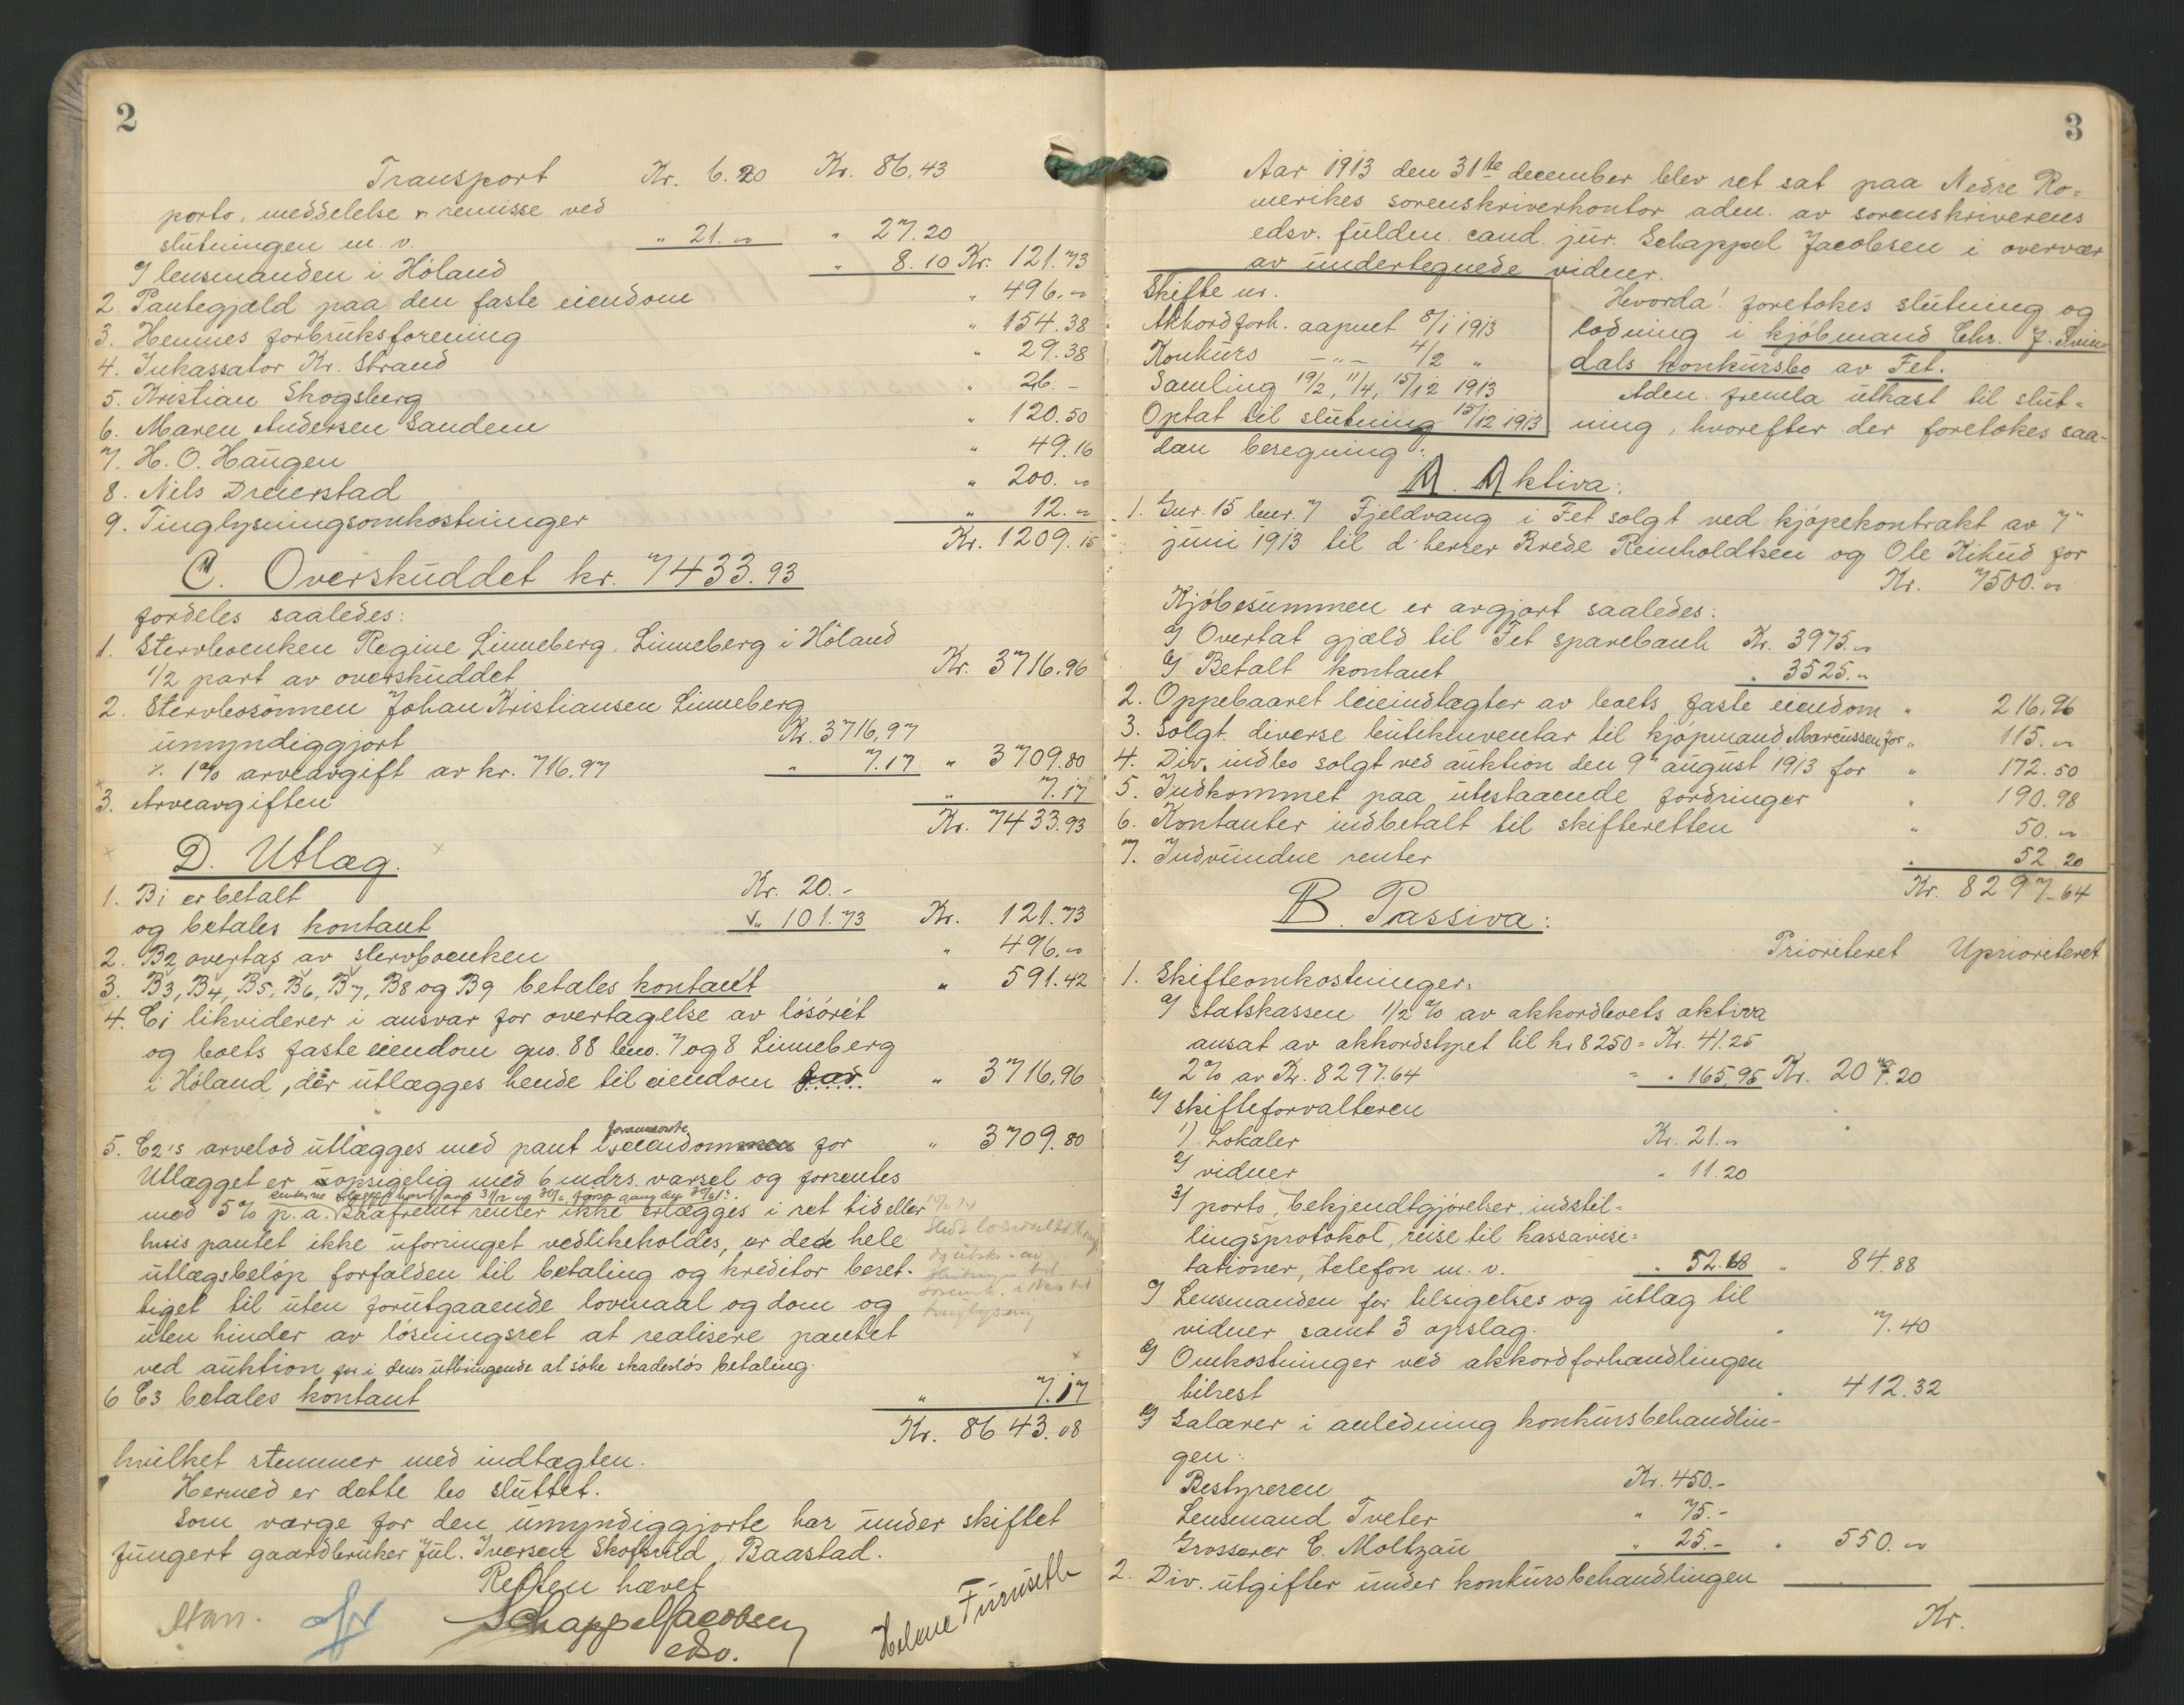 2
Transport Kr. 6.20 Kr. 86.43
porto, meddelelse r. remisse ved
slutningen m. v. " 21.- " 27.20
lensmanden i Höland " 8.10 Kr. 121.73
2 Pantegjæld paa den faste eiendom " 496.-
3. Hemnes forbruksforening " 154.38
4. Inkassator Kr. Strand " 29.38
5. Kristian Skogsberg " 26.-
6. Maren Andersen Sandem " 120.50
7. H. O. Haugen " 49.16
8. Nils Dreierstad " 200.-
9. Tinglysningsomkostninger " 12.-
Kr. 1209.15
C. Overskuddet kr. 7433.93
fordeles saaledes:
1. Stervboenken Regine Linneberg, Linneberg i Höland
1/2 part av overskuddet Kr. 3716.96
2. Stervbosönnen Johan Kristiansen Linneberg
umyndiggjort Kr. 3716,97
÷ 1% arveavgift av kr. 716.97 " 7.17 " 3709.80
3. Arveavgiften " 7.17
Kr. 7433.93
D. Utlæg.
1. B1 er betalt Kr. 20.-
og betales kontant " 101.73 Kr. 121.73
2. B2 overtas av stervboenken " 496.-
3. B3, B4, B5, B6, B7, B8 og B9 betales kontant " 591.42
4. C1 likviderer i ansvar for overtagelse av lösöret
og boets faste eiendom gno. 88 bno. 7 og 8 Linneberg
i Höland, der utlægges hende til eiendom for " 3716,96
5. C2's arvelod utlægges med pant i forannævnte eiendommen for " 3709.80
Utlægget er uopsigelig med 6 mdrs. varsel og forrentes
med 5% p. a. Saafremt renter ikke erlægges i ret tid eller
hvis pantet ikke uforringet vedlikeholdes, er det hele
utlægsbelöp forfalden til betaling og kreditor beret-
tiget til uten forutgaaende lovmaal og dom og
uten hinder av lösningsret at realisere pantet
ved auktion for i dens utbringende at söke skadeslös betaling.
6 C3 betales kontant " 7.17
Kr. 8643.08
hvilket stemmer med indtægten.
Hermed er dette bo sluttet.
Som værge for den umyndiggjorte har under skiftet
fungert gaardbruker Jul. Iversen Skofsrud, Baastad.
Retten hævet
Schappel Jacobsen
edsv.
Helene Furuseth
3
Aar 1913 den 31te december blev ret sat paa Nedre Ro-
merikes sorenskriverkontor adm. av sorenskriverens
edsv. fuldm. cand. jur. Schappel Jacobsen i overvær
av undertegnede vidner.
Skifte nr.
Akkordforh. aapnet 8/1 1913
Konkurs -"- 4/2 "
Samling 19/2, 11/4, 15/12 1913
Optat til slutning 15/12 1913
Hvorda! foretokes slutning og
lodning i kjöbmand Chr. J. Svin-
dals konkursbo av Fet.
Adm. fremla utkast til slut-
ning, hvorefter der foretokes saa-
dan beregning:
A. Aktiva:
1. Gnr. 15 bnr. 7 Fjeldvang i Fet solgt ved kjöpekontrakt av 7"
juni 1913 til d'herrer Brede Reinholdtsen og Ole Kihud for
Kr. 7500.-
Kjöbesummen er avgjort saaledes:
a/ Overtat gjæld til Fet sparebank Kr. 3975.-
b/ Betalt kontant " 3525.-
2. Oppebaaret leieindtægter av boets faste eiendom " 216.96
3. Solgt diverse butikinventar til kjöpmand Marcussen for " 115.-
4. Div. indbo solgt ved auktion den 9" august 1913 for " 172.50
5. Indkommet paa utestaaende fordringer " 190.98
6. Kontanter indbetalt til skifteretten " 50.-
7. Indvundne renter " 52.20
Kr. 8297.64
B. Passiva:
Prioriteret Uprioriteret
1. Skifteomkostninger:
a/ statskassen 1/2 % av akkordboets aktiva
ansat av akkordstyret til kr 8250 = Kr. 41.25
2% av Kr. 8297.64 = " 165,95 Kr. 207.20
b/ skifteforvalteren
1) Lokaler Kr. 21.-
2/ vidner " 11.20
3/ porto, bekjendtgjörelser, indstil-
lingsprotokol, reise til kassavisi-
tationer, telefon m. v. " 52.68 " 84.88
c/ Lensmanden for tilsigelses og utlæg til
vidner samt 3 opslag. " 7.40
d/ Omkostninger ved akkordforhandlingen
tilrest " 412.32
e/ Salærer i anledning konkursbehandlin-
gen:
Bestyreren Kr. 450.-
Lensmand Tveter " 75.-
Grosserer C. Moltzau " 25.- " 550.-
2. Div. utgifter under konkursbehandlingen
Kr.